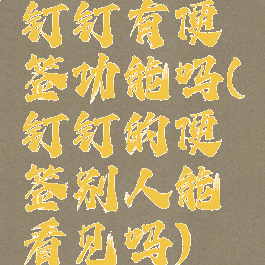 钉钉有便
签功能吗(
钉钉的便
签别人能
看见吗)